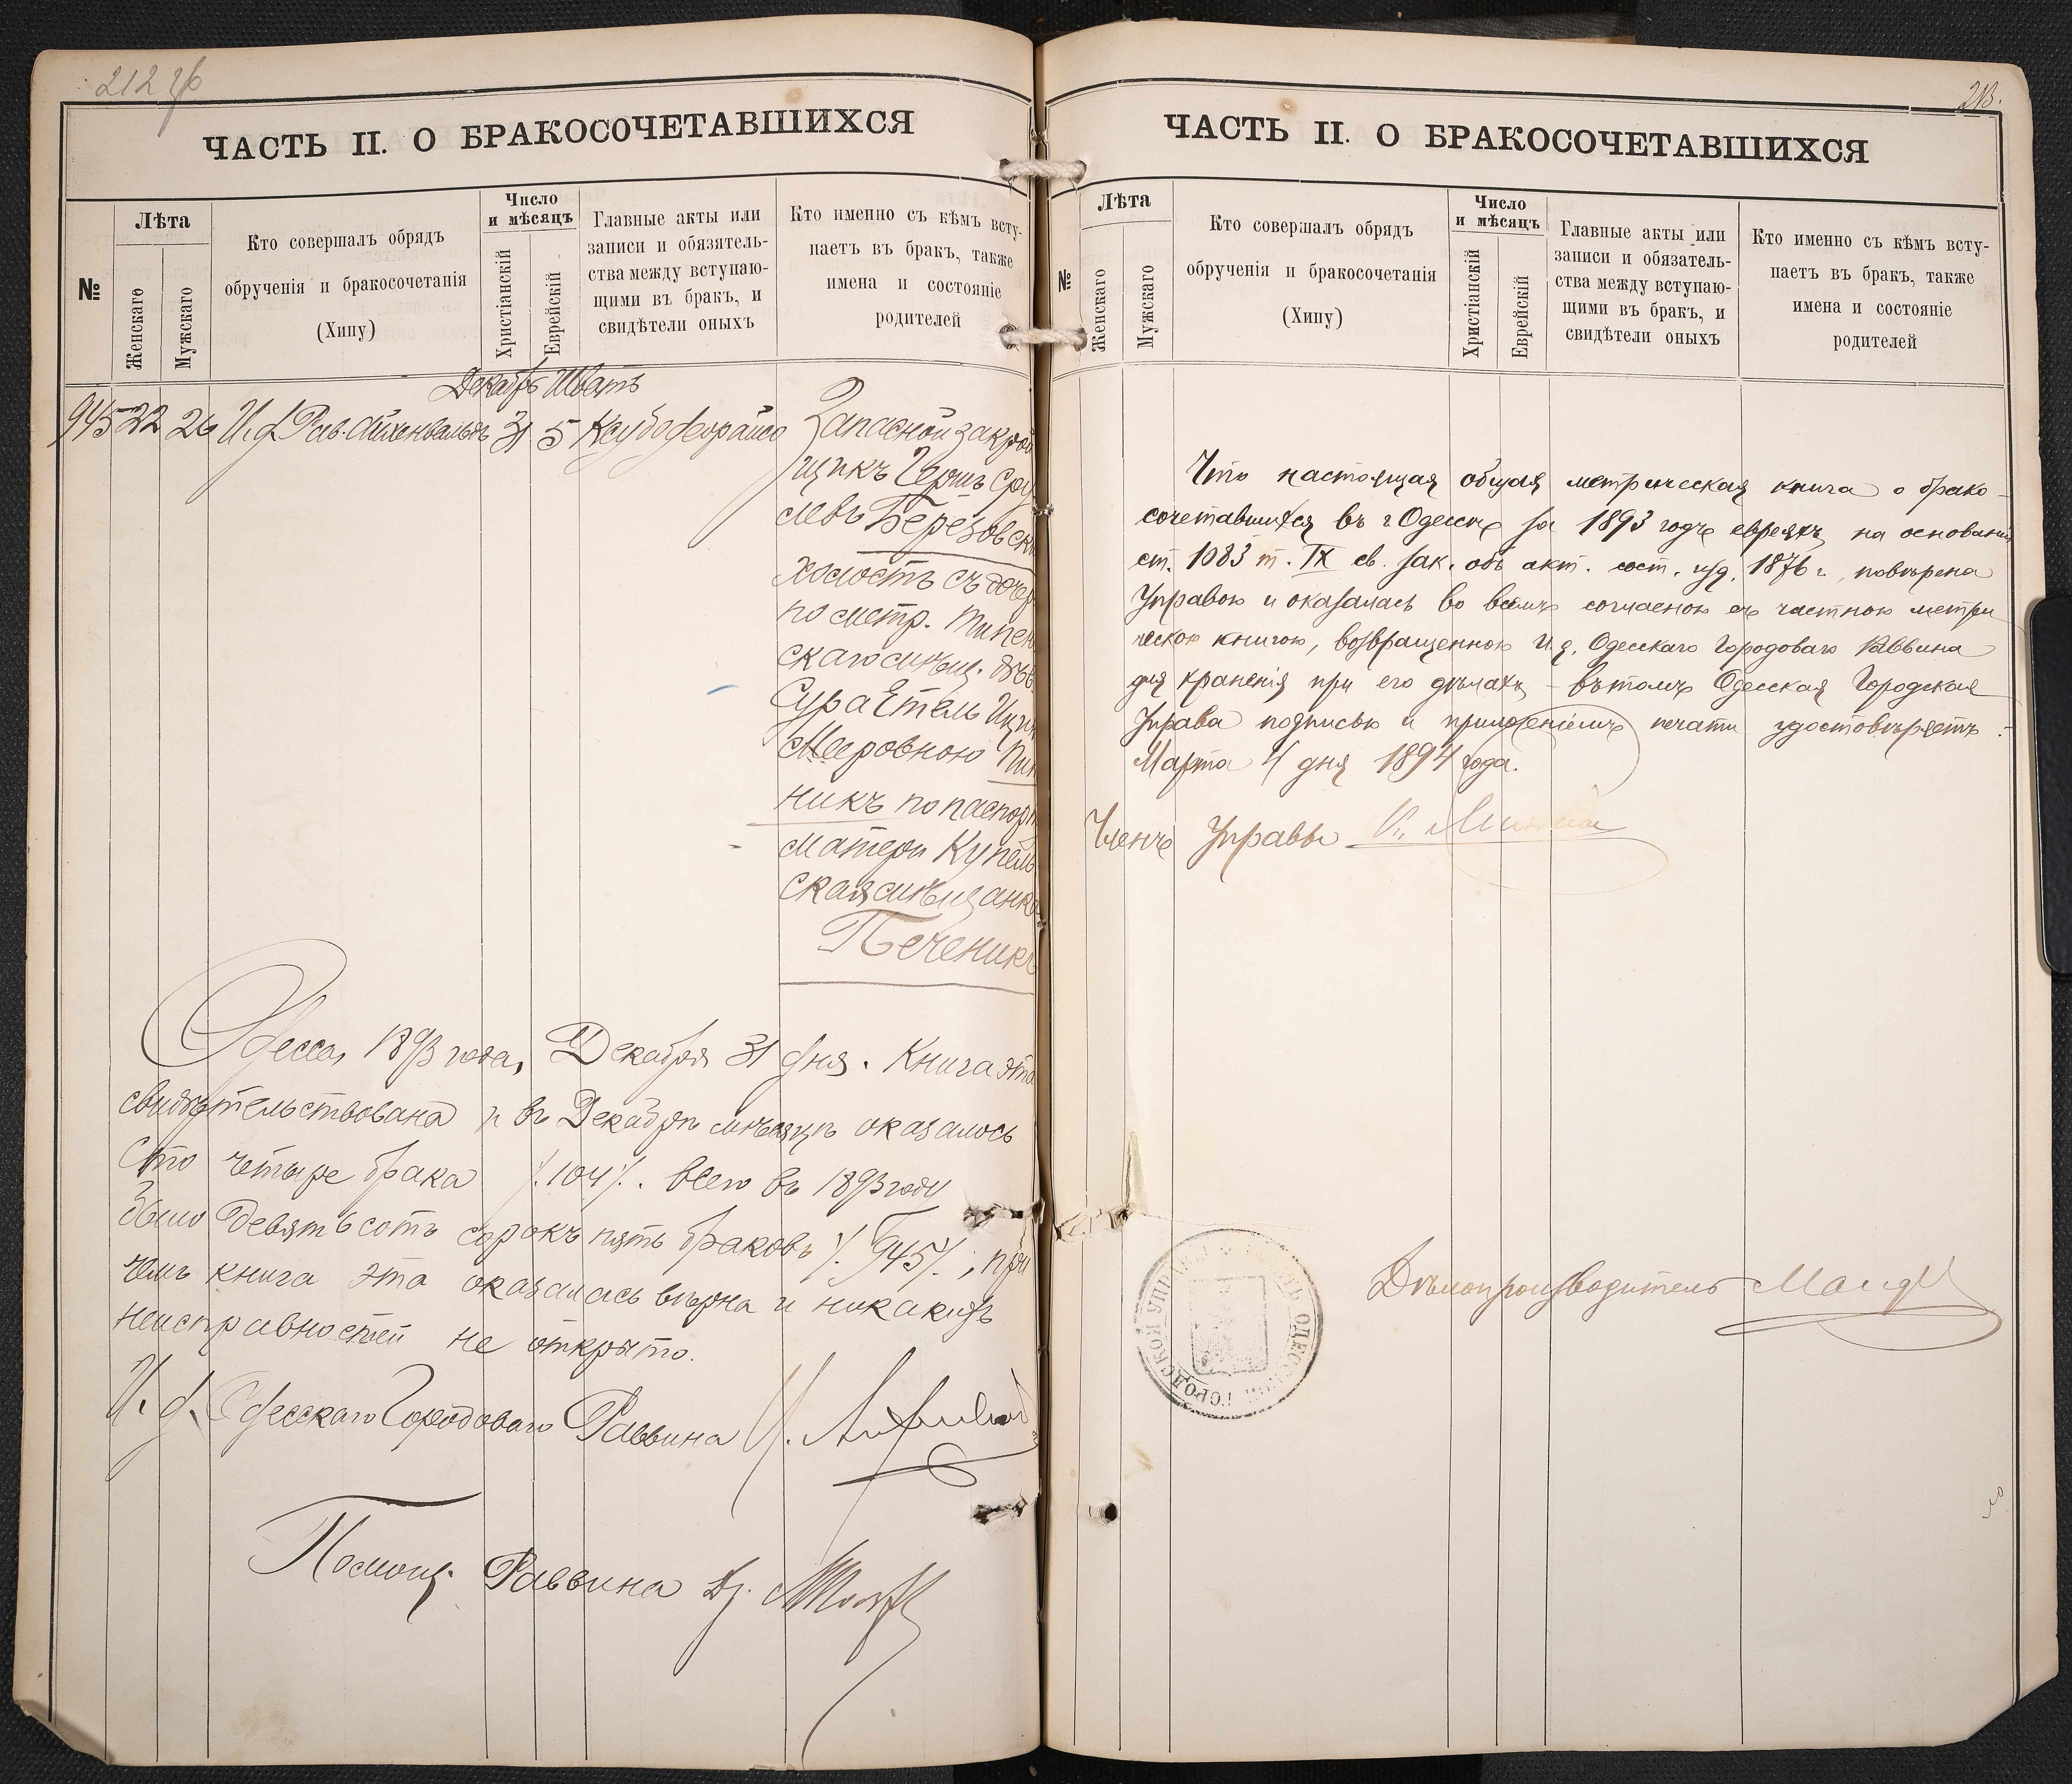 212 об
ЧАСТЬ II. О БРАКОСОЧЕТАВШИХСЯ
№
Лѣта
Женскаго
Мужскаго
Кто совершалъ обрядъ
обрученія и бракосочетанія
(Хипу)
Число
и мѣсяцъ
Христіанскій
Еврейскій
Главные акты или
записи и обязатель-
ства между вступаю-
щими въ бракъ, и
свидѣтели оныхъ
Кто именно съ кѣмъ всту-
паетъ въ бракъ, также
имена и состояніе
родителей
Декабрь Шватъ
945 22 26 И. д. Рав. Айхенвальдъ 31 5 Ксубо Запасной закрой
щикъ Гершъ Сру
левъ Березовскі
холостъ съ дочер
по метр.
скаго мѣщ. дѣв.
Сура Етель Ицко
Мееровною
никъ по паспорт
матери Купель
ская мѣщанка
Печеникъ
Одесса, 1893 года, Декабря 31 дня. Книга эта
свидѣтельствована и въ Декабрѣ мѣсяцѣ оказалось
Сто четыре брака /.104/. всего въ 1893 году
было Девятьсотъ сорокъ пять браковъ /.945/.; при
чемъ книга эта оказалась вѣрна и никакихъ
неисправностей не открыто.
И. д. Одесскаго Городоваго Раввина
Помощ. Раввина Др.
213.
ЧАСТЬ II. О БРАКОСОЧЕТАВШИХСЯ
№
Лѣта
Женскаго
Мужскаго
Кто совершалъ обрядъ
обрученія и бракосочетанія
(Хипу)
Число
и мѣсяцъ
Христіанскій
Еврейскій
Главные акты или
записи и обязатель-
ства между вступаю-
щими въ бракъ, и
свидѣтели оныхъ
Кто именно съ кѣмъ всту-
паетъ въ бракъ, также
имена и состояніе
родителей
Что настоящая общая метрическая книга о брако-
сочетавшихся въ г. Одессѣ за 1893 годъ евреяхъ, на основаніи
ст. 1083 т. IX св. зак. объ акт. сост. изд. 1876 г., повѣрена
Управою и оказалась во всемъ согласною съ частною метри
ческою книгою, возвращенною И. д. Одесскаго Городоваго Раввина
для храненія при его дѣлахъ – въ томъ Одесская Городская
Управа подписью и приложеніемъ печати удостовѣряетъ:
Марта 4 дня 1894 года.
Членъ Управы
Дѣлопроизводитель
ОДЕССКАЯ ГОРОДСКОЙ УПРАВЫ